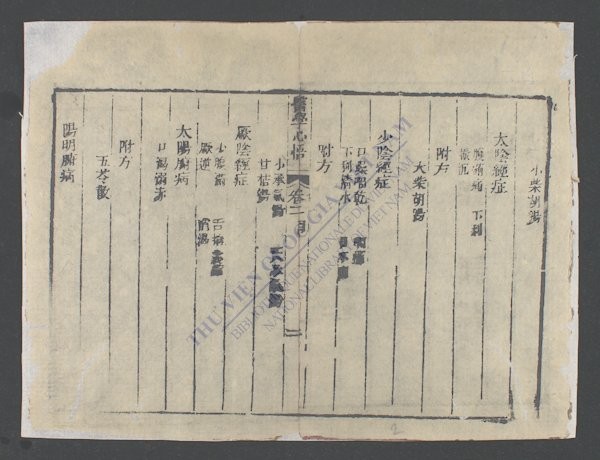 小柴胡湯
太陰經症
腹滿痛 下利
附方
大柴胡湯
少陰經症
口燥咽乾 咽痛
下利清水
附方
小承氣湯 大承氣湯
甘桔湯
醫學心悟 卷二目 二
厥陰經症
少腹滿 舌卷囊縮
厥逆 消渴
太陽腑病
口渴溺赤
附方
五苓散
陽明腑病
THƯ VIỆN QUỐC GIA VIỆT NAM
BIBLIOTHEQUE NATIONALE DU VIETNAM
NATIONAL LIBRARY OF VIETNAM
2